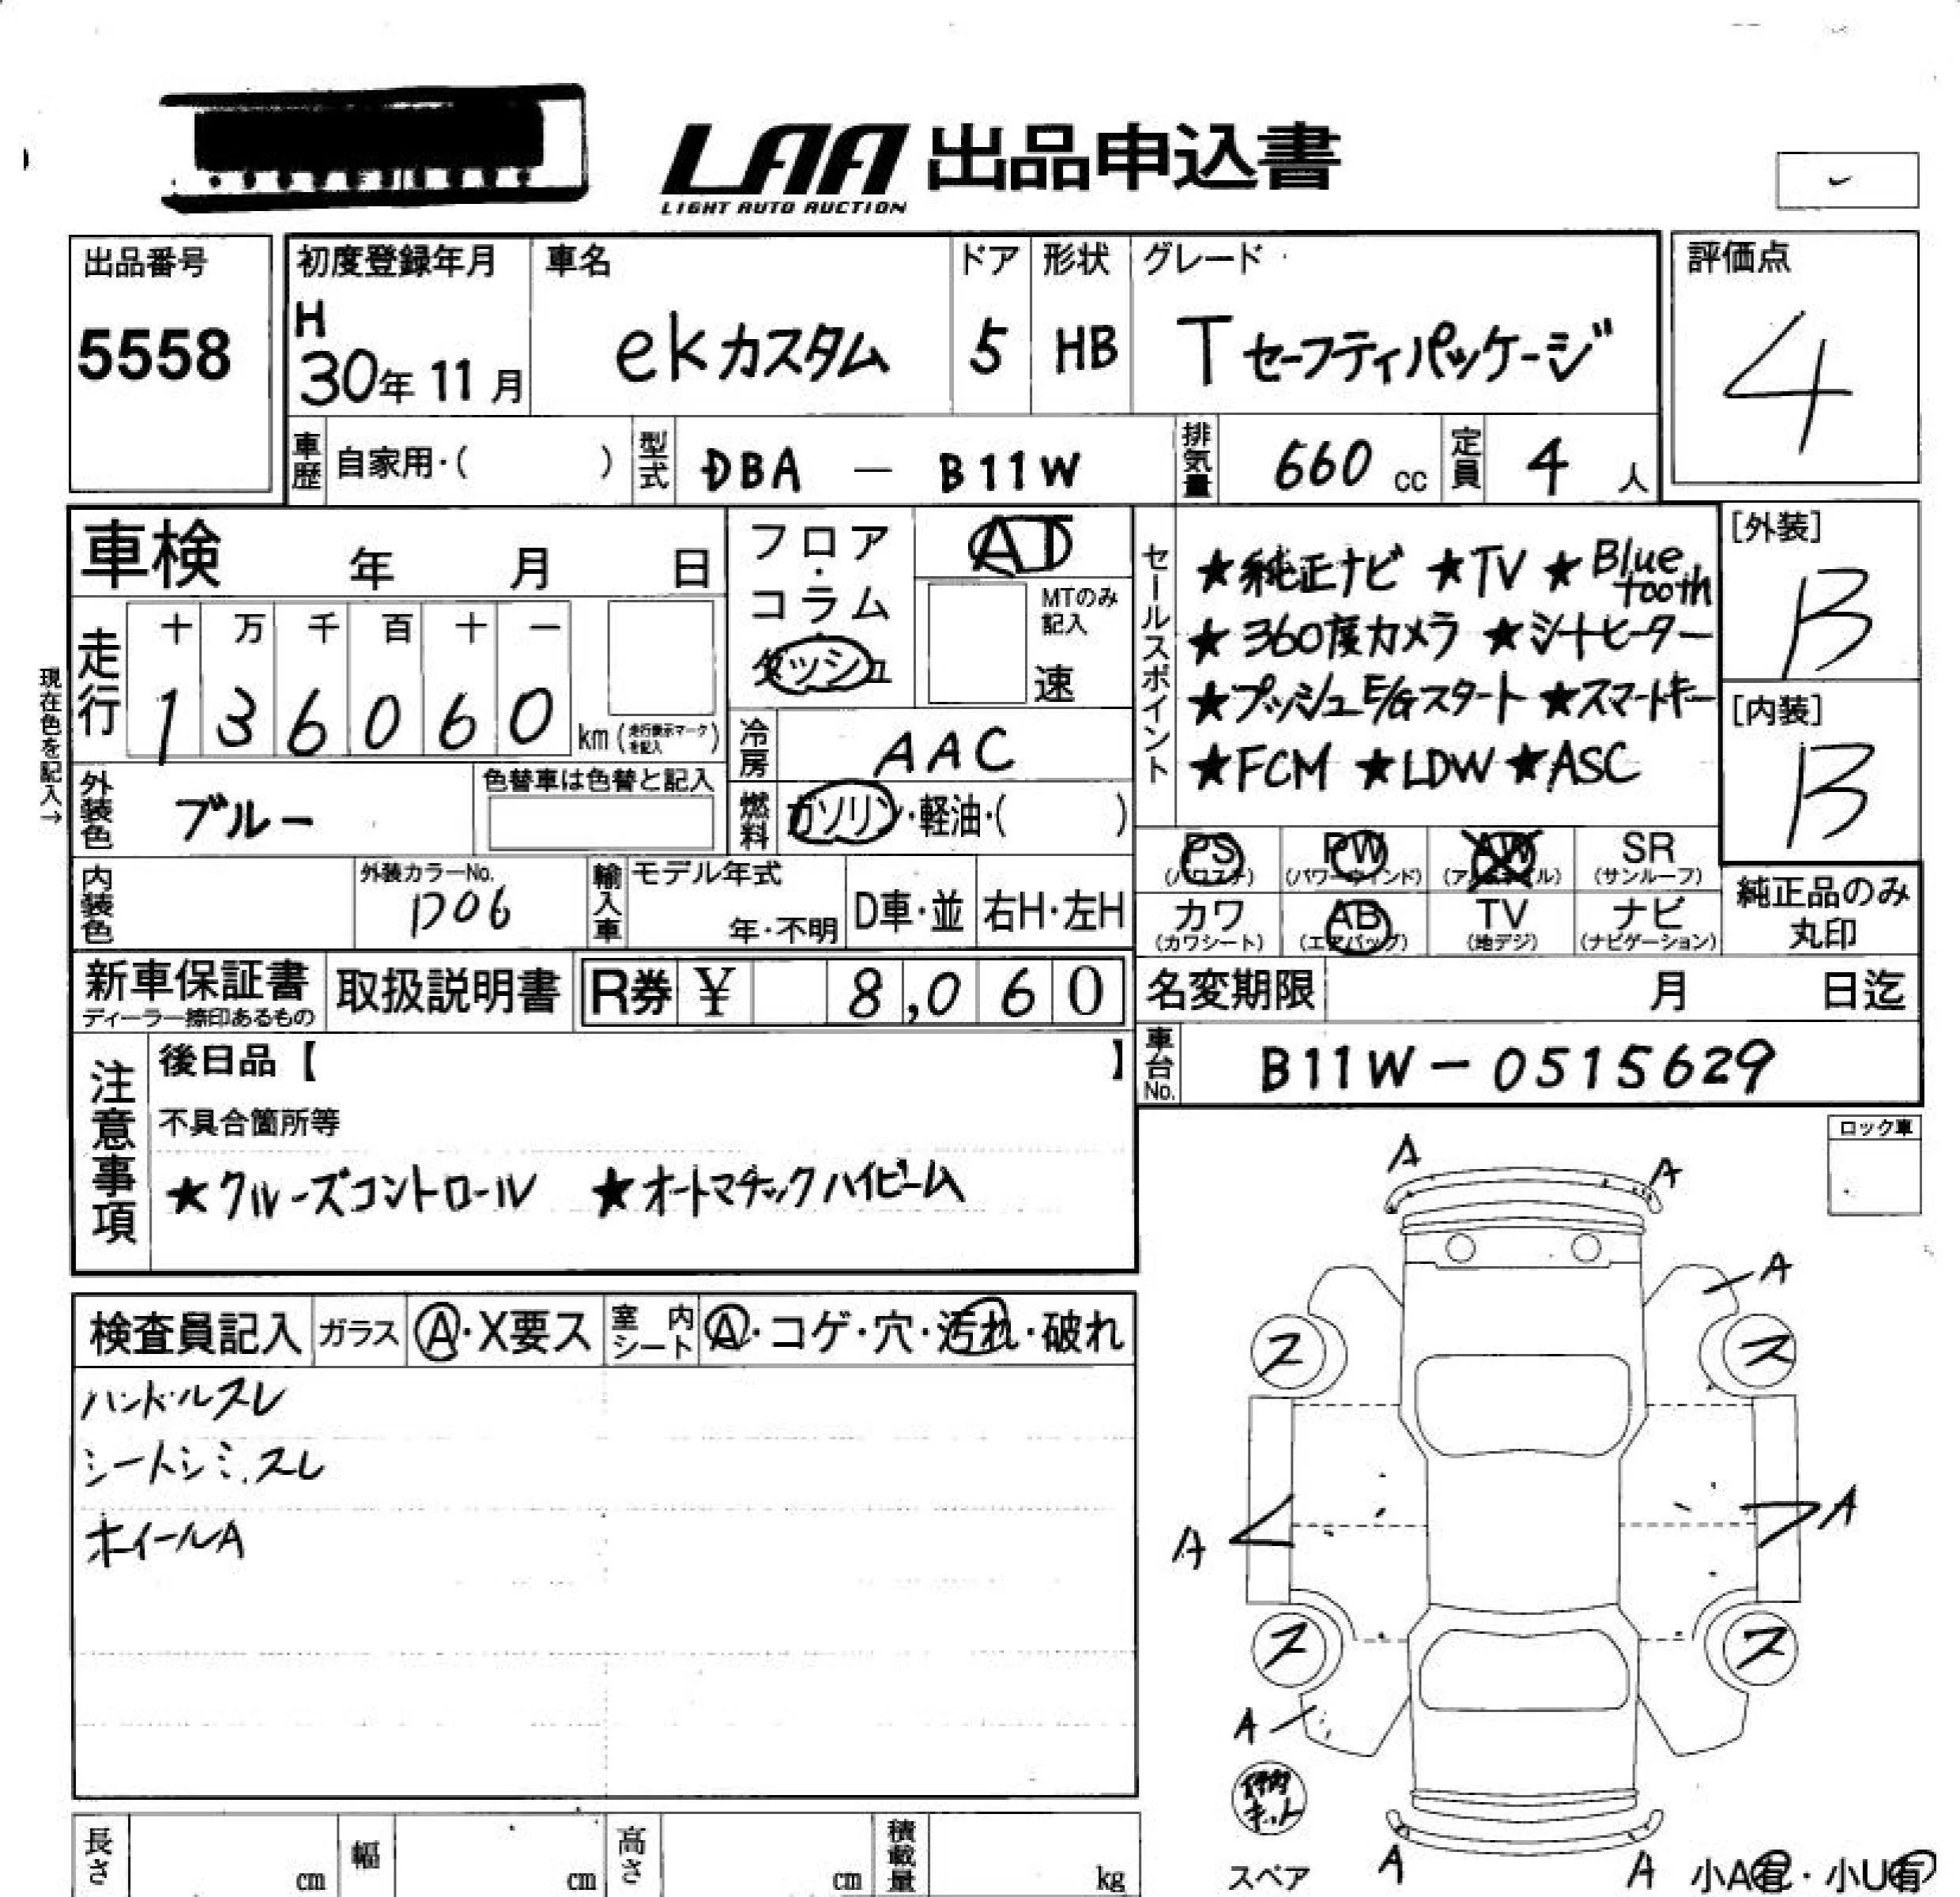 LAA 出品申込書
LIGHT AUTO AUCTION
出品番号
5558
初度登録年月
H
30年 11月
車名
ekカスタム
ドア
5
形状
HB
グレード
T セーフティパッケージ
評価点
4
車歴 自家用・( )
型式 DBA － B11W
排気量 660 cc
定員 4 人
車検 年 月 日
フロア・コラム・ダッシュ
AT
MTのみ記入
速
セールスポイント
★純正ナビ ★TV ★Bluetooth
★360度カメラ ★シートヒーター
★プッシュE/Gスタート ★スマートキー
★FCM ★LDW ★ASC
[外装]
B
[内装]
B
現在色を記入→
走行
十 万 千 百 十 一
1 3 6 0 6 0 km (走行表示マークを記入)
冷房 AAC
外装色 ブルー
色替車は色替と記入
燃料 ガソリン・軽油・( )
内装色
外装カラーNo.
D06
輸入車
モデル年式
年・不明
D車・並
右H・左H
PS (パワステ)
PW (パワーウインド)
AW (アルミホイル)
SR (サンルーフ)
カワ (カワシート)
AB (エアバッグ)
TV (地デジ)
ナビ (ナビゲーション)
純正品のみ
丸印
新車保証書
ディーラー捺印あるもの
取扱説明書
R券 ¥ 8,060
名変期限 月 日迄
車台No. B11W－0515629
注意事項
後日品【 】
不具合箇所等
★クルーズコントロール ★オートマチックハイビーム
ロック車
検査員記入
ガラス A・X要ス
室内シート A・コゲ・穴・汚れ・破れ
ハンドルスレ
シートシミ.スレ
ホイールA
A A
A
ス ス
A A
ス ス
A
スペア
A A
小A有・小U有
長さ cm
幅 cm
高さ cm
積載量 kg